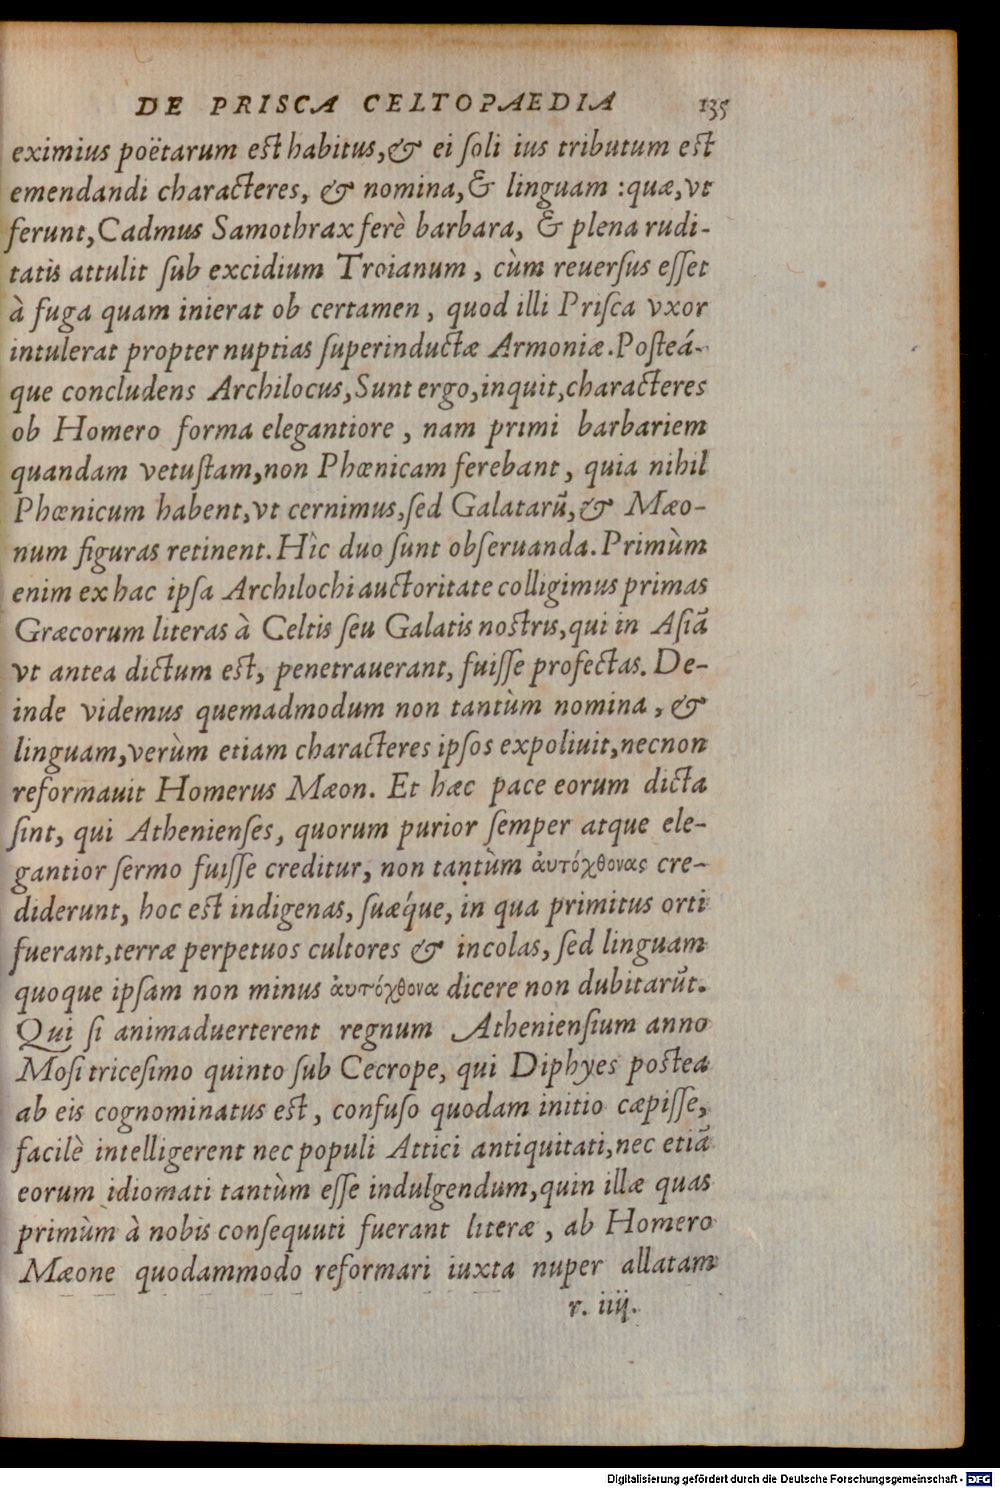 DE PRISCA CELTOPAEDIA 135
eximius poëtarum est habitus, & ei ſoli ius tributum est
emendandi characteres, & nomina, & linguam : quæ, vt
ferunt, Cadmus Samothrax ferè barbara, & plena rudi-
tatis attulit ſub excidium Troianum, cùm reuerſus eſſet
à fuga quam inierat ob certamen, quod illi Priſca vxor
intulerat propter nuptias ſuperinductæ Armoniæ. Poſteá-
que concludens Archilocus, Sunt ergo, inquit, characteres
ob Homero forma elegantiore, nam primi barbariem
quandam vetuſtam, non Phœnicam ferebant, quia nihil
Phœnicum habent, vt cernimus, ſed Galatarũ, & Mæo-
num figuras retinent. Hîc duo ſunt obſeruanda. Primùm
enim ex hac ipſa Archilochi auctoritate colligimus primas
Græcorum literas à Celtis ſeu Galatis nostris, qui in Aſiã
vt antea dictum est, penetrauerant, fuiſſe profectas. De-
inde videmus quemadmodum non tantùm nomina, &
linguam, verùm etiam characteres ipſos expoliuit, necnon
reformauit Homerus Mæon. Et hæc pace eorum dicta
ſint, qui Athenienſes, quorum purior ſemper atque ele-
gantior ſermo fuiſſe creditur, non tantùm ἀυτόχθονας cre-
diderunt, hoc est indigenas, ſuæque, in qua primitus orti
fuerant, terræ perpetuos cultores & incolas, ſed linguam
quoque ipſam non minus ἀυτόχθονα dicere non dubitarũt.
Qui ſi animaduerterent regnum Athenienſium anno
Moſi triceſimo quinto ſub Cecrope, qui Diphyes postea
ab eis cognominatus est, confuſo quodam initio cæpiſſe,
facilè intelligerent nec populi Attici antiquitati, nec etiã
eorum idiomati tantùm eſſe indulgendum, quin illæ quas
primùm à nobis conſequuti fuerant literæ, ab Homero
Mæone quodammodo reformari iuxta nuper allatam
r. iiij.
Digitalisierung gefördert durch die Deutsche Forschungsgemeinschaft - DFG